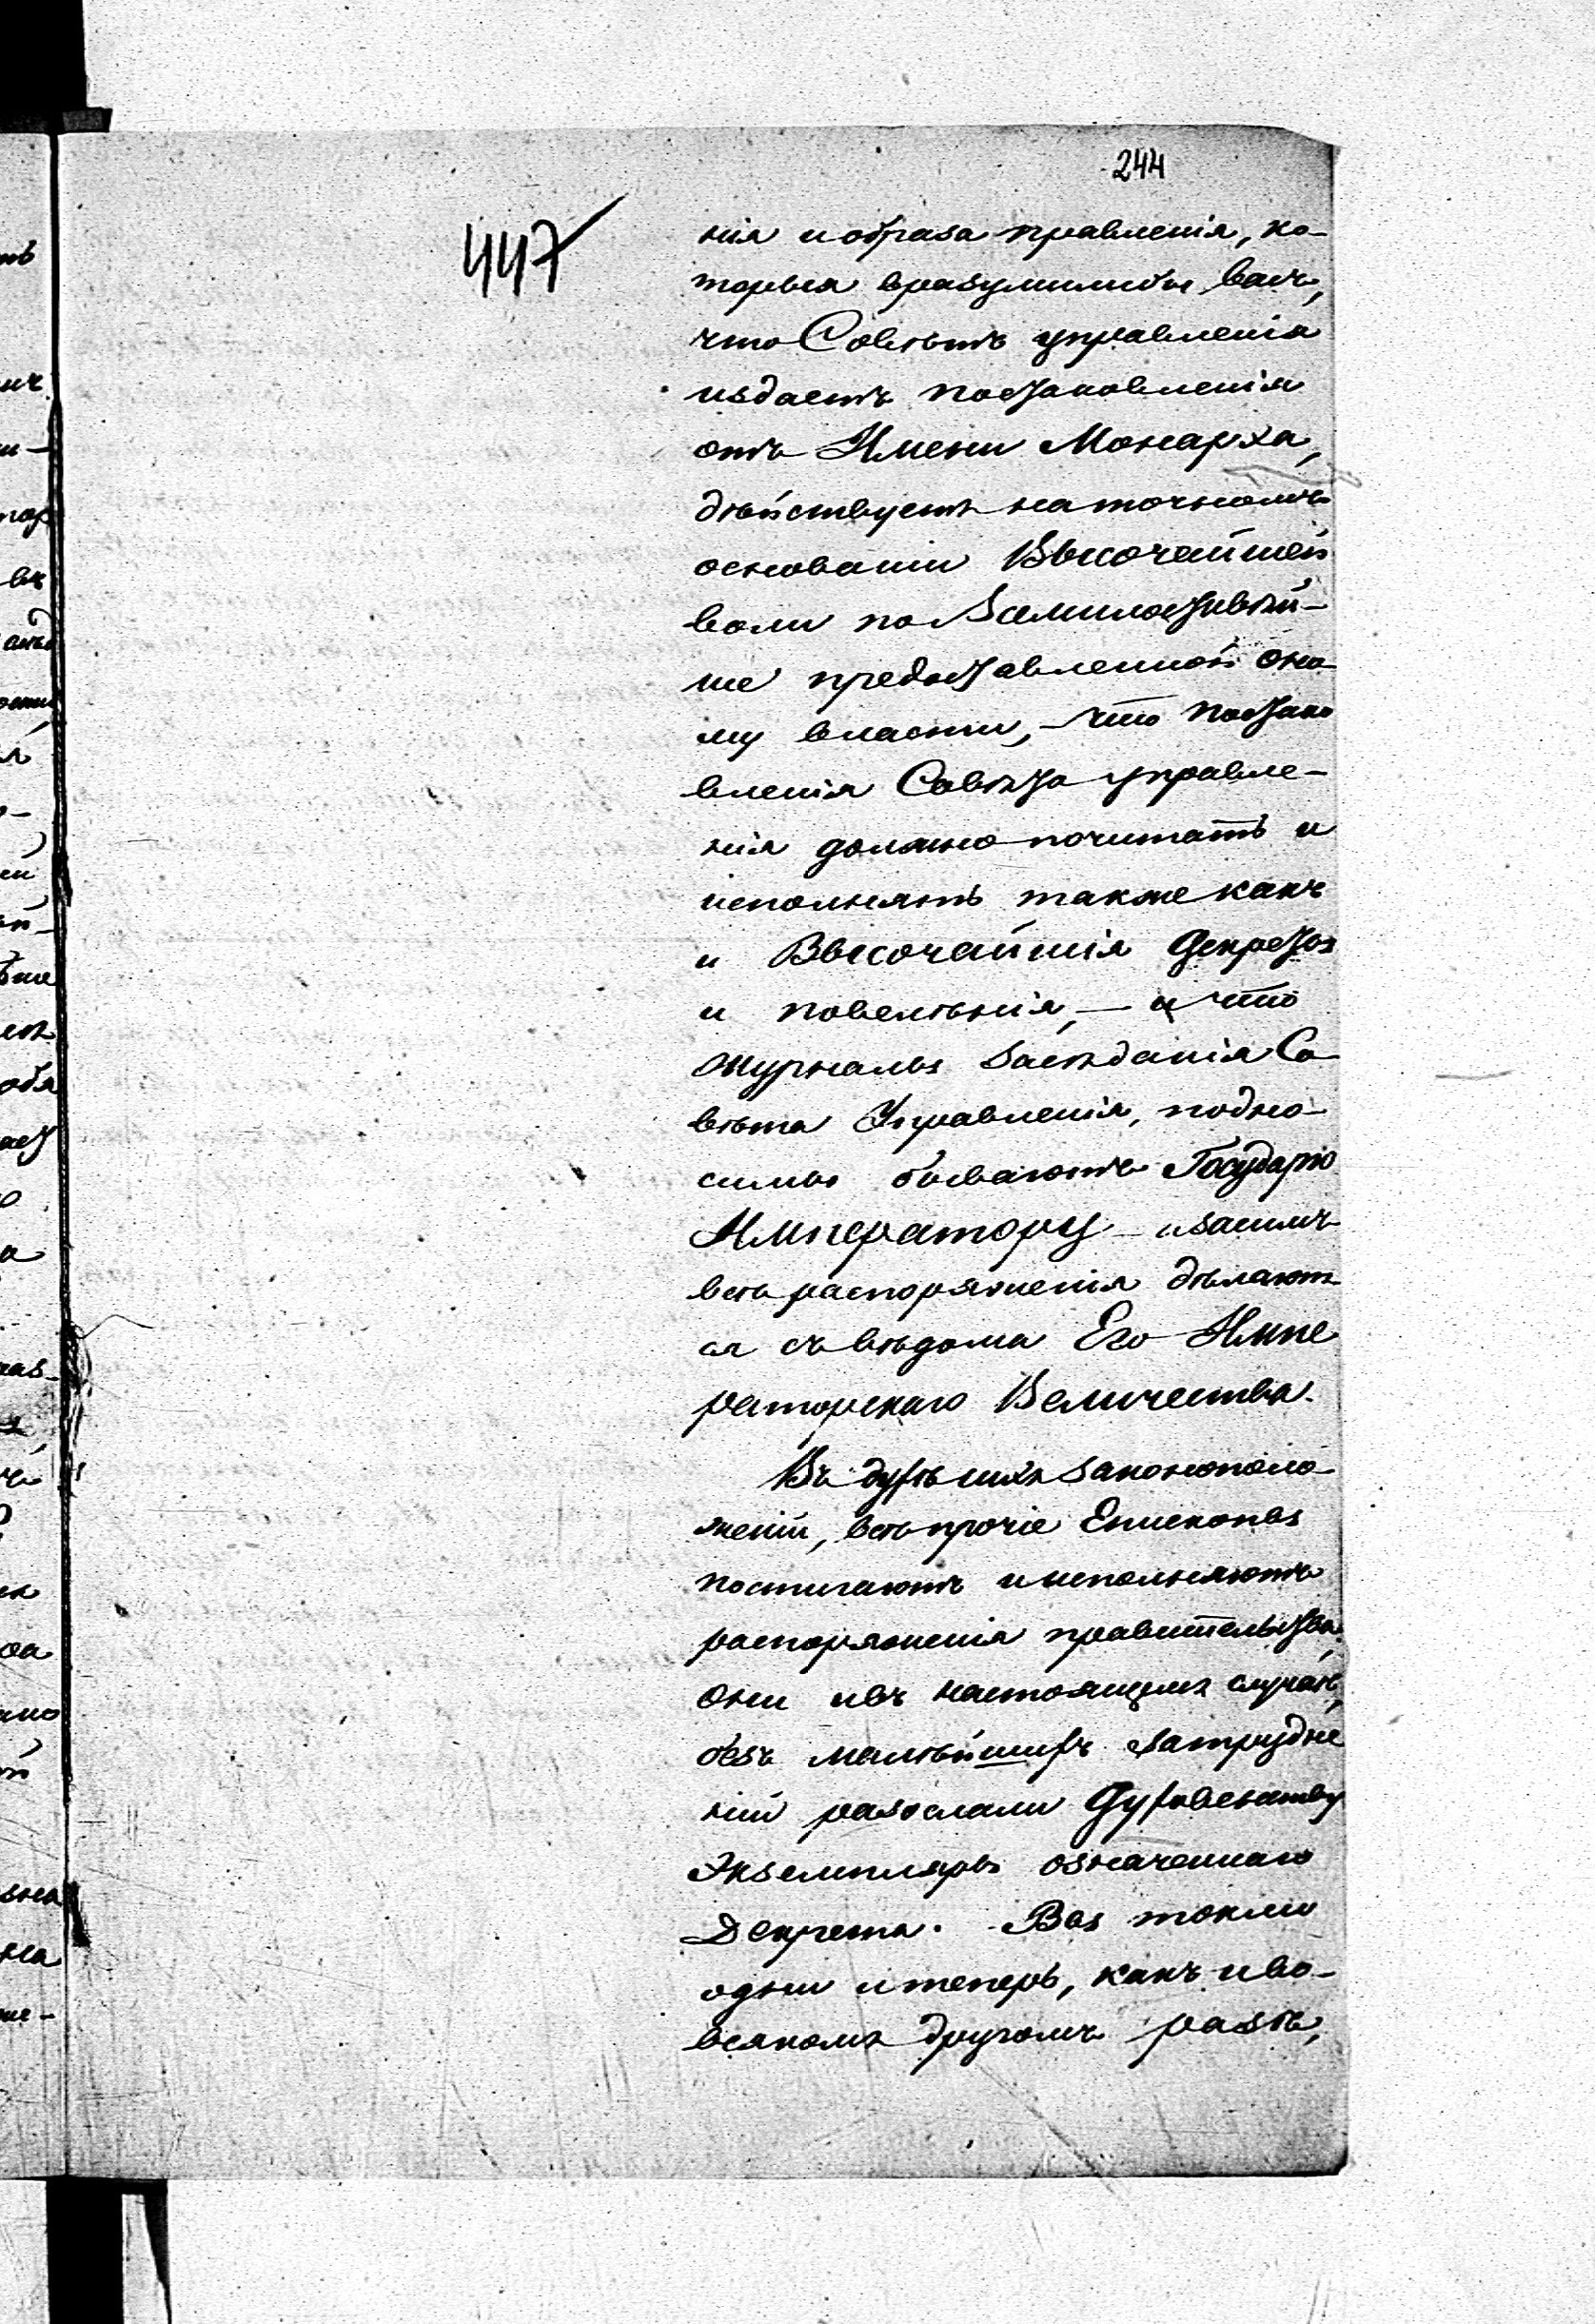 244
447
нія и образа правленія, ко-
торыя вразумилибы васъ,
что Совѣтъ управленія
издаетъ постановленія
отъ Имени Монарха,
дѣйствуетъ на точномъ
основаніи Высочайшей
воли по Всемилостивѣй-
ше предоставленной оно-
му власти, – что постано
вленія Совѣта управле-
нія должно почитать и
исполнять также какъ
и Высочайшія Декреты
и повелѣнія, – и что
журналы засѣданія Со-
вѣта Управленія, подно-
симы бываютъ Государю
Императору – и засимъ
всѣ распоряженія дѣлают-
ся съ вѣдома Его Импе
раторскаго Величества.
Въ духѣ сихъ законополо-
женій, всѣ прочіе Епископы
постигаютъ и исполняютъ
распоряженія правительства
они и въ настоящемъ случаѣ,
безъ малѣйшихъ затрудне
ній разослали Духовенству
Экземпляры означеннаго
Декрета. Вы токмо
одни и теперь, какъ и во-
всякомъ другомъ разѣ,